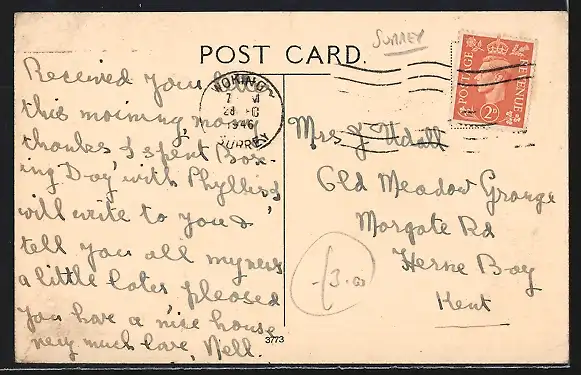 SURREY
POST CARD.
Received your letter
this morning, many
thanks I spent Box-
ing Day with Phyllis
will write to you &
tell you all my news
a little later pleased
you have a nice house
very much love, Nell.
WOKING
28
1946
SURREY
POSTAGE
REVENUE
2D
Mrs J Udall
Old Meadow Grange
Margate Rd
Herne Bay
Kent
£3.00
3773